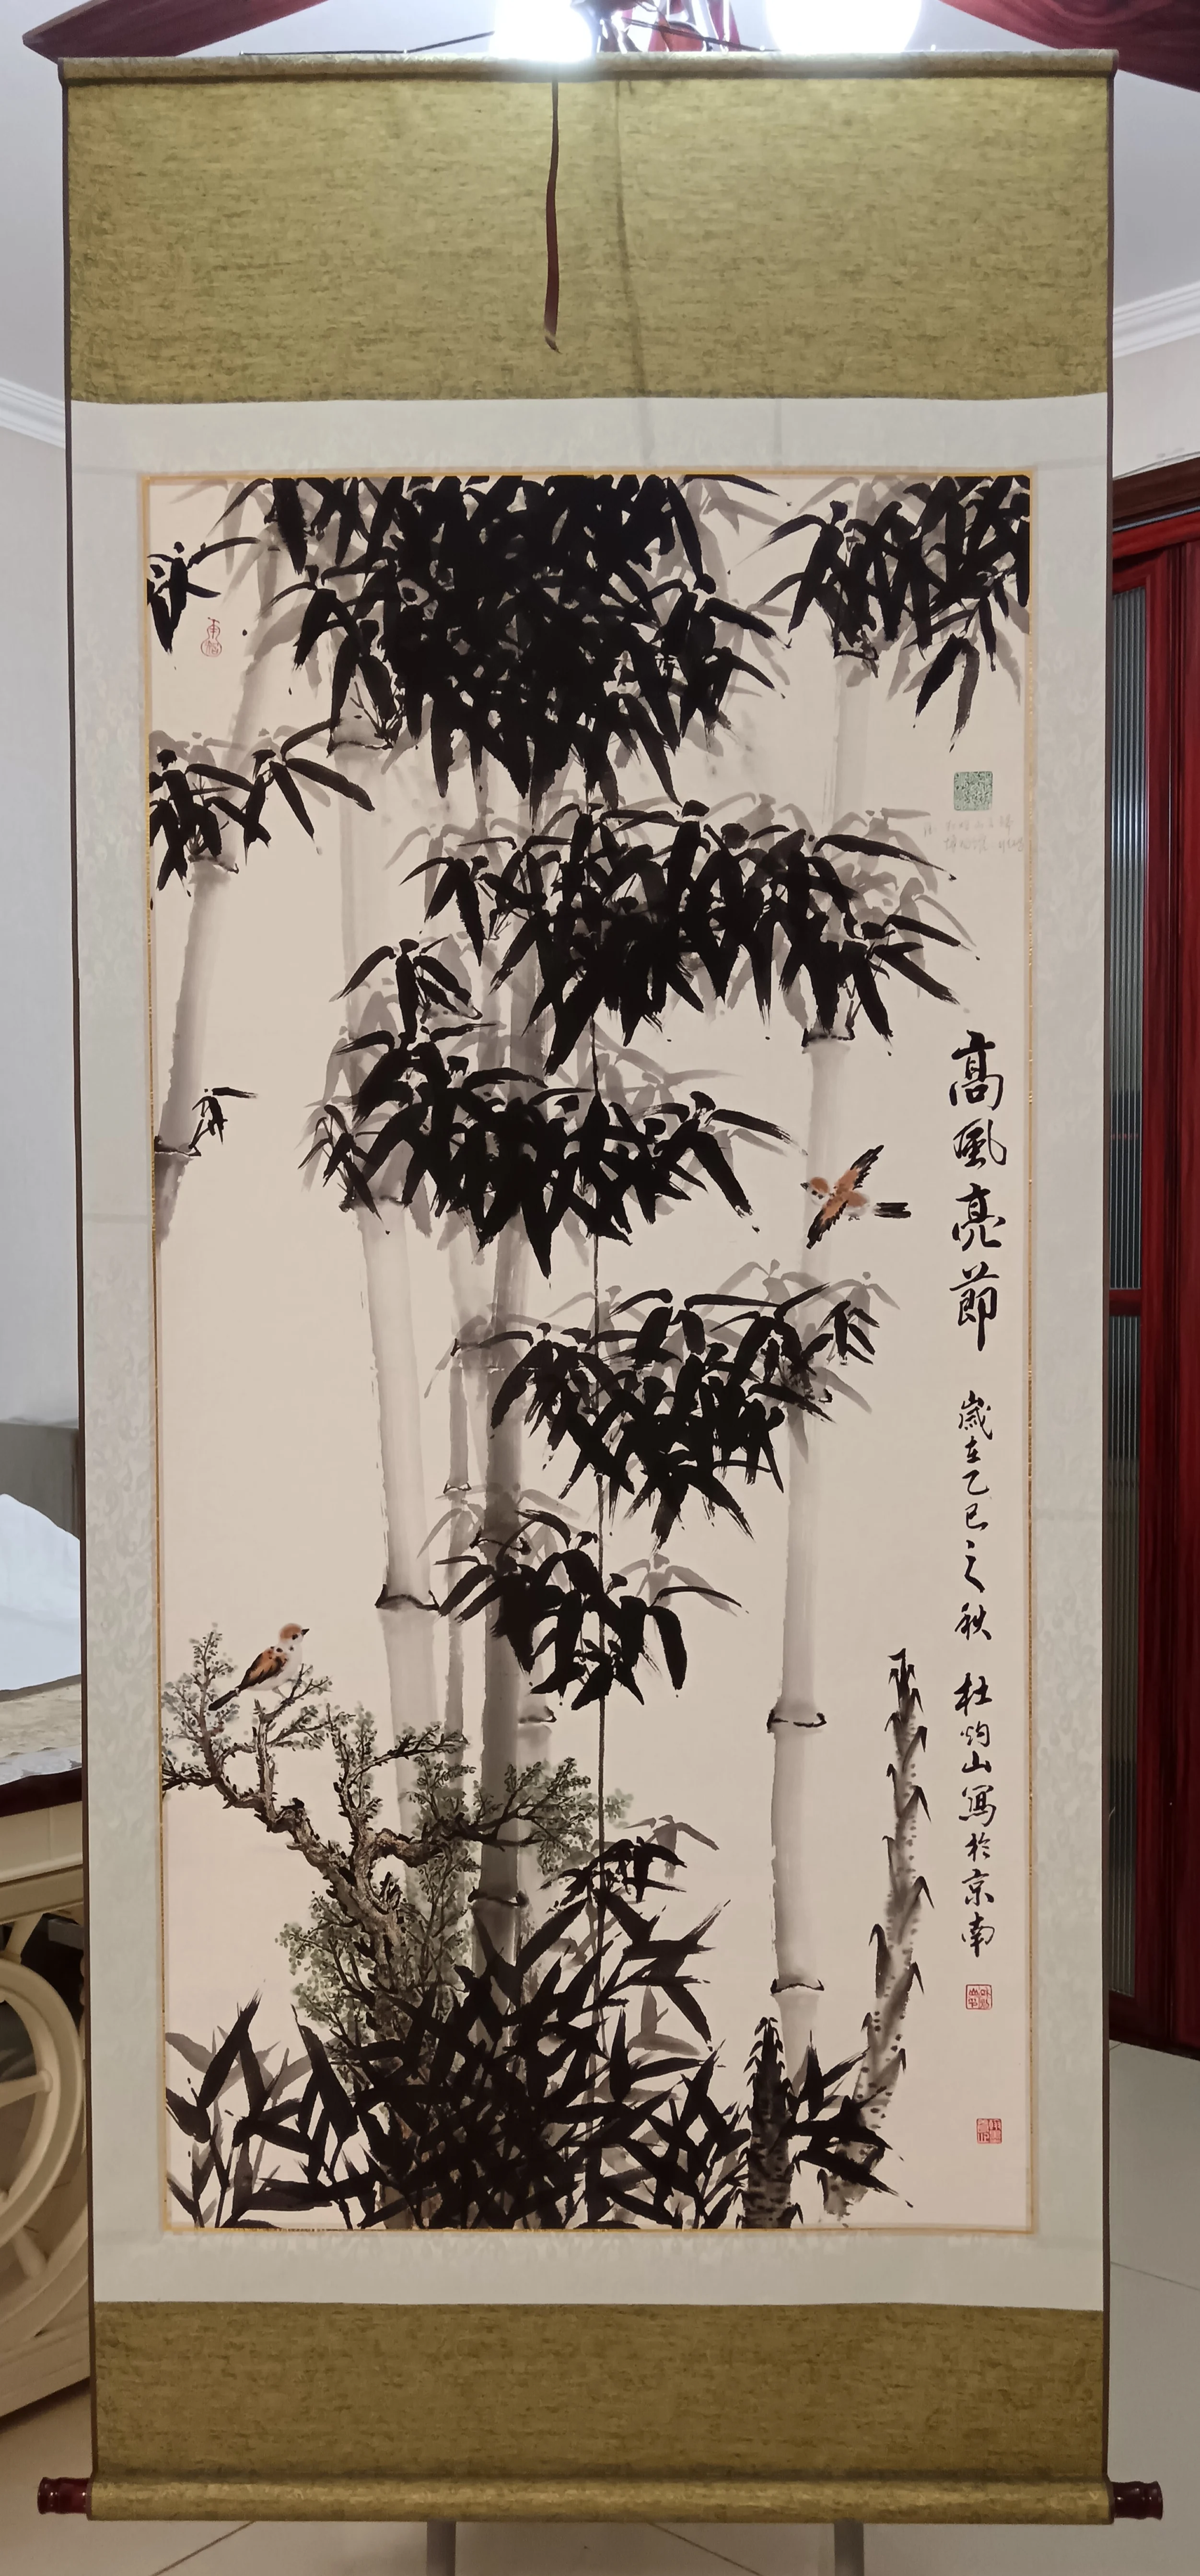 高風亮節 歲在乙巳之秋 杜灼山寫於京南